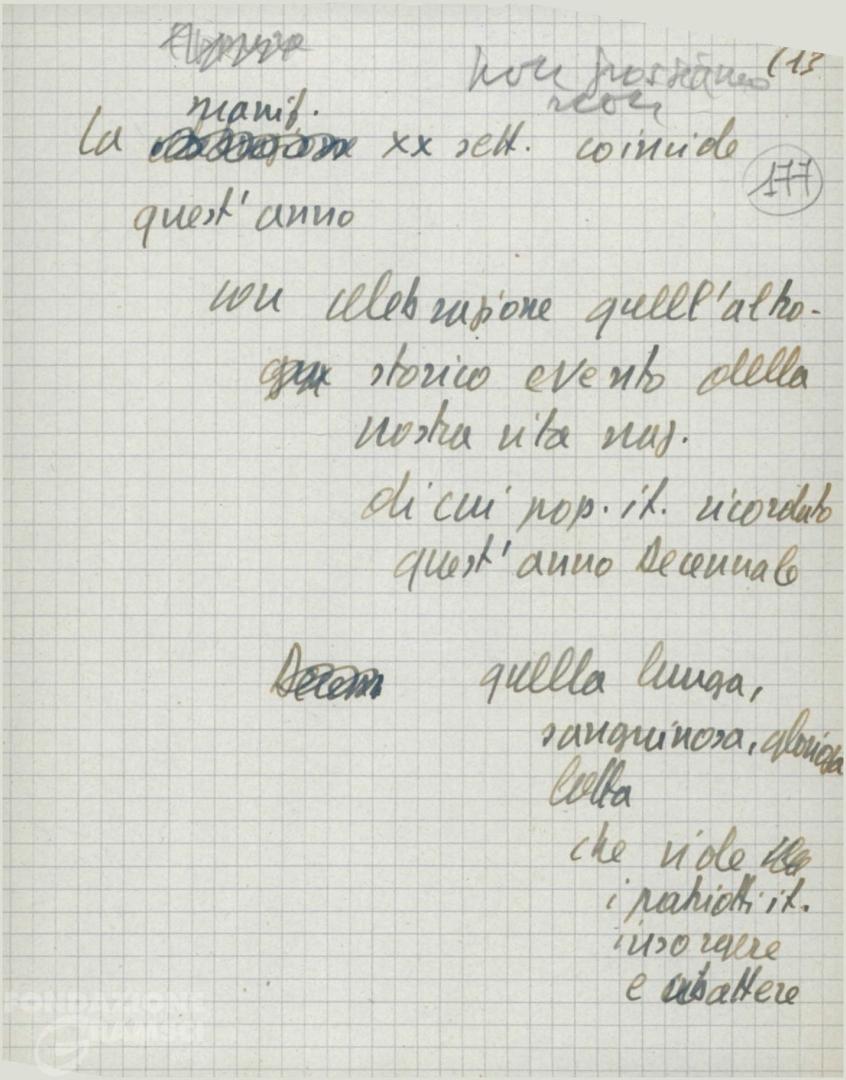 non possiamo (13
non
manif.
La xx sett. coincide
177
quest'anno
con celebrazione quell'altro
storico evento della
nostra vita naz.
di cui pop. it. ricordato
quest'anno Decennale
Decenn quella lunga,
sanguinosa, gloriosa
lotta
che vide
i patriotti it.
insorgere
e abattere
FONDAZIONE